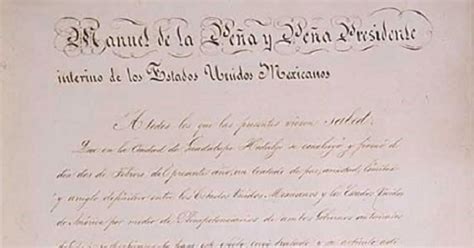 Manuel de la Peña y Peña Presidente
interino de los Estados Unidos Mexicanos
A todos los que las presentes vieren sabed:
Que en la Ciudad de Guadalupe Hidalgo se concluyó y firmó el
dia dos de Febrero del presente año, un tratado de paz, amistad, limites
y arreglo definitivo entre los Estados Unidos Mexicanos y los Estados Unidos
de América por medio de Plenipotenciarios de ambos Gobiernos autorizados